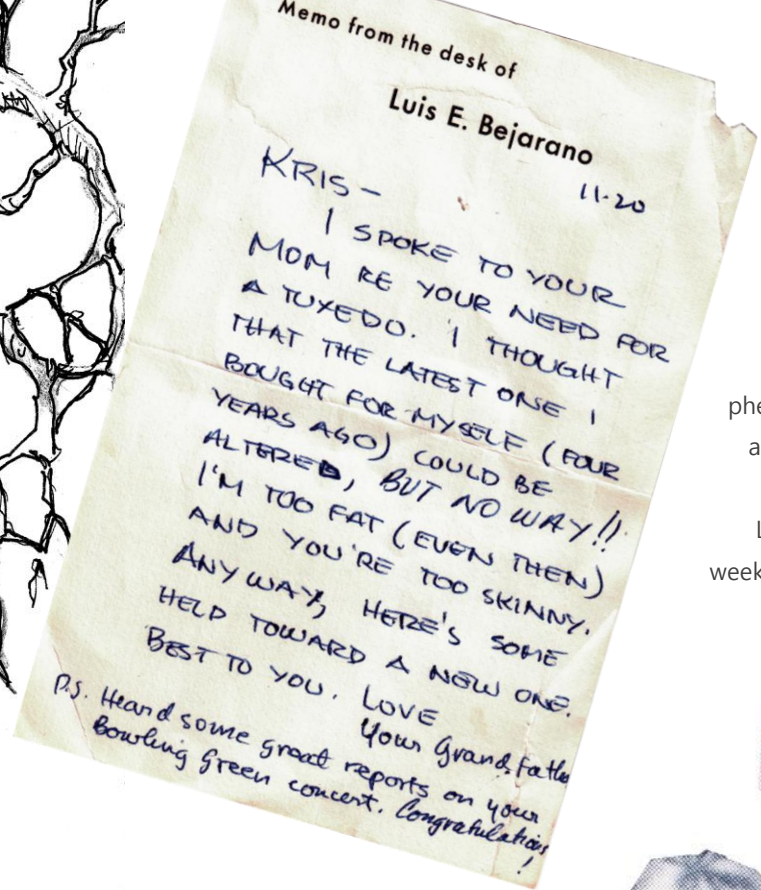 Memo from the desk of
Luis E. Bejarano
KRIS- 11-20
I SPOKE TO YOUR
MOM RE YOUR NEED FOR
A TUXEDO. I THOUGHT
THAT THE LATEST ONE I
BOUGHT FOR MYSELF (FOUR
YEARS AGO) COULD BE
ALTERED, BUT NO WAY!!
I'M TOO FAT (EVEN THEN)
AND YOU'RE TOO SKINNY.
ANYWAY, HERE'S SOME
HELP TOWARD A NEW ONE.
BEST TO YOU. LOVE
Your Grandfather
P.S. Heard some great reports on your
Bowling Green concert. Congratulations
!
phe
a
L
week